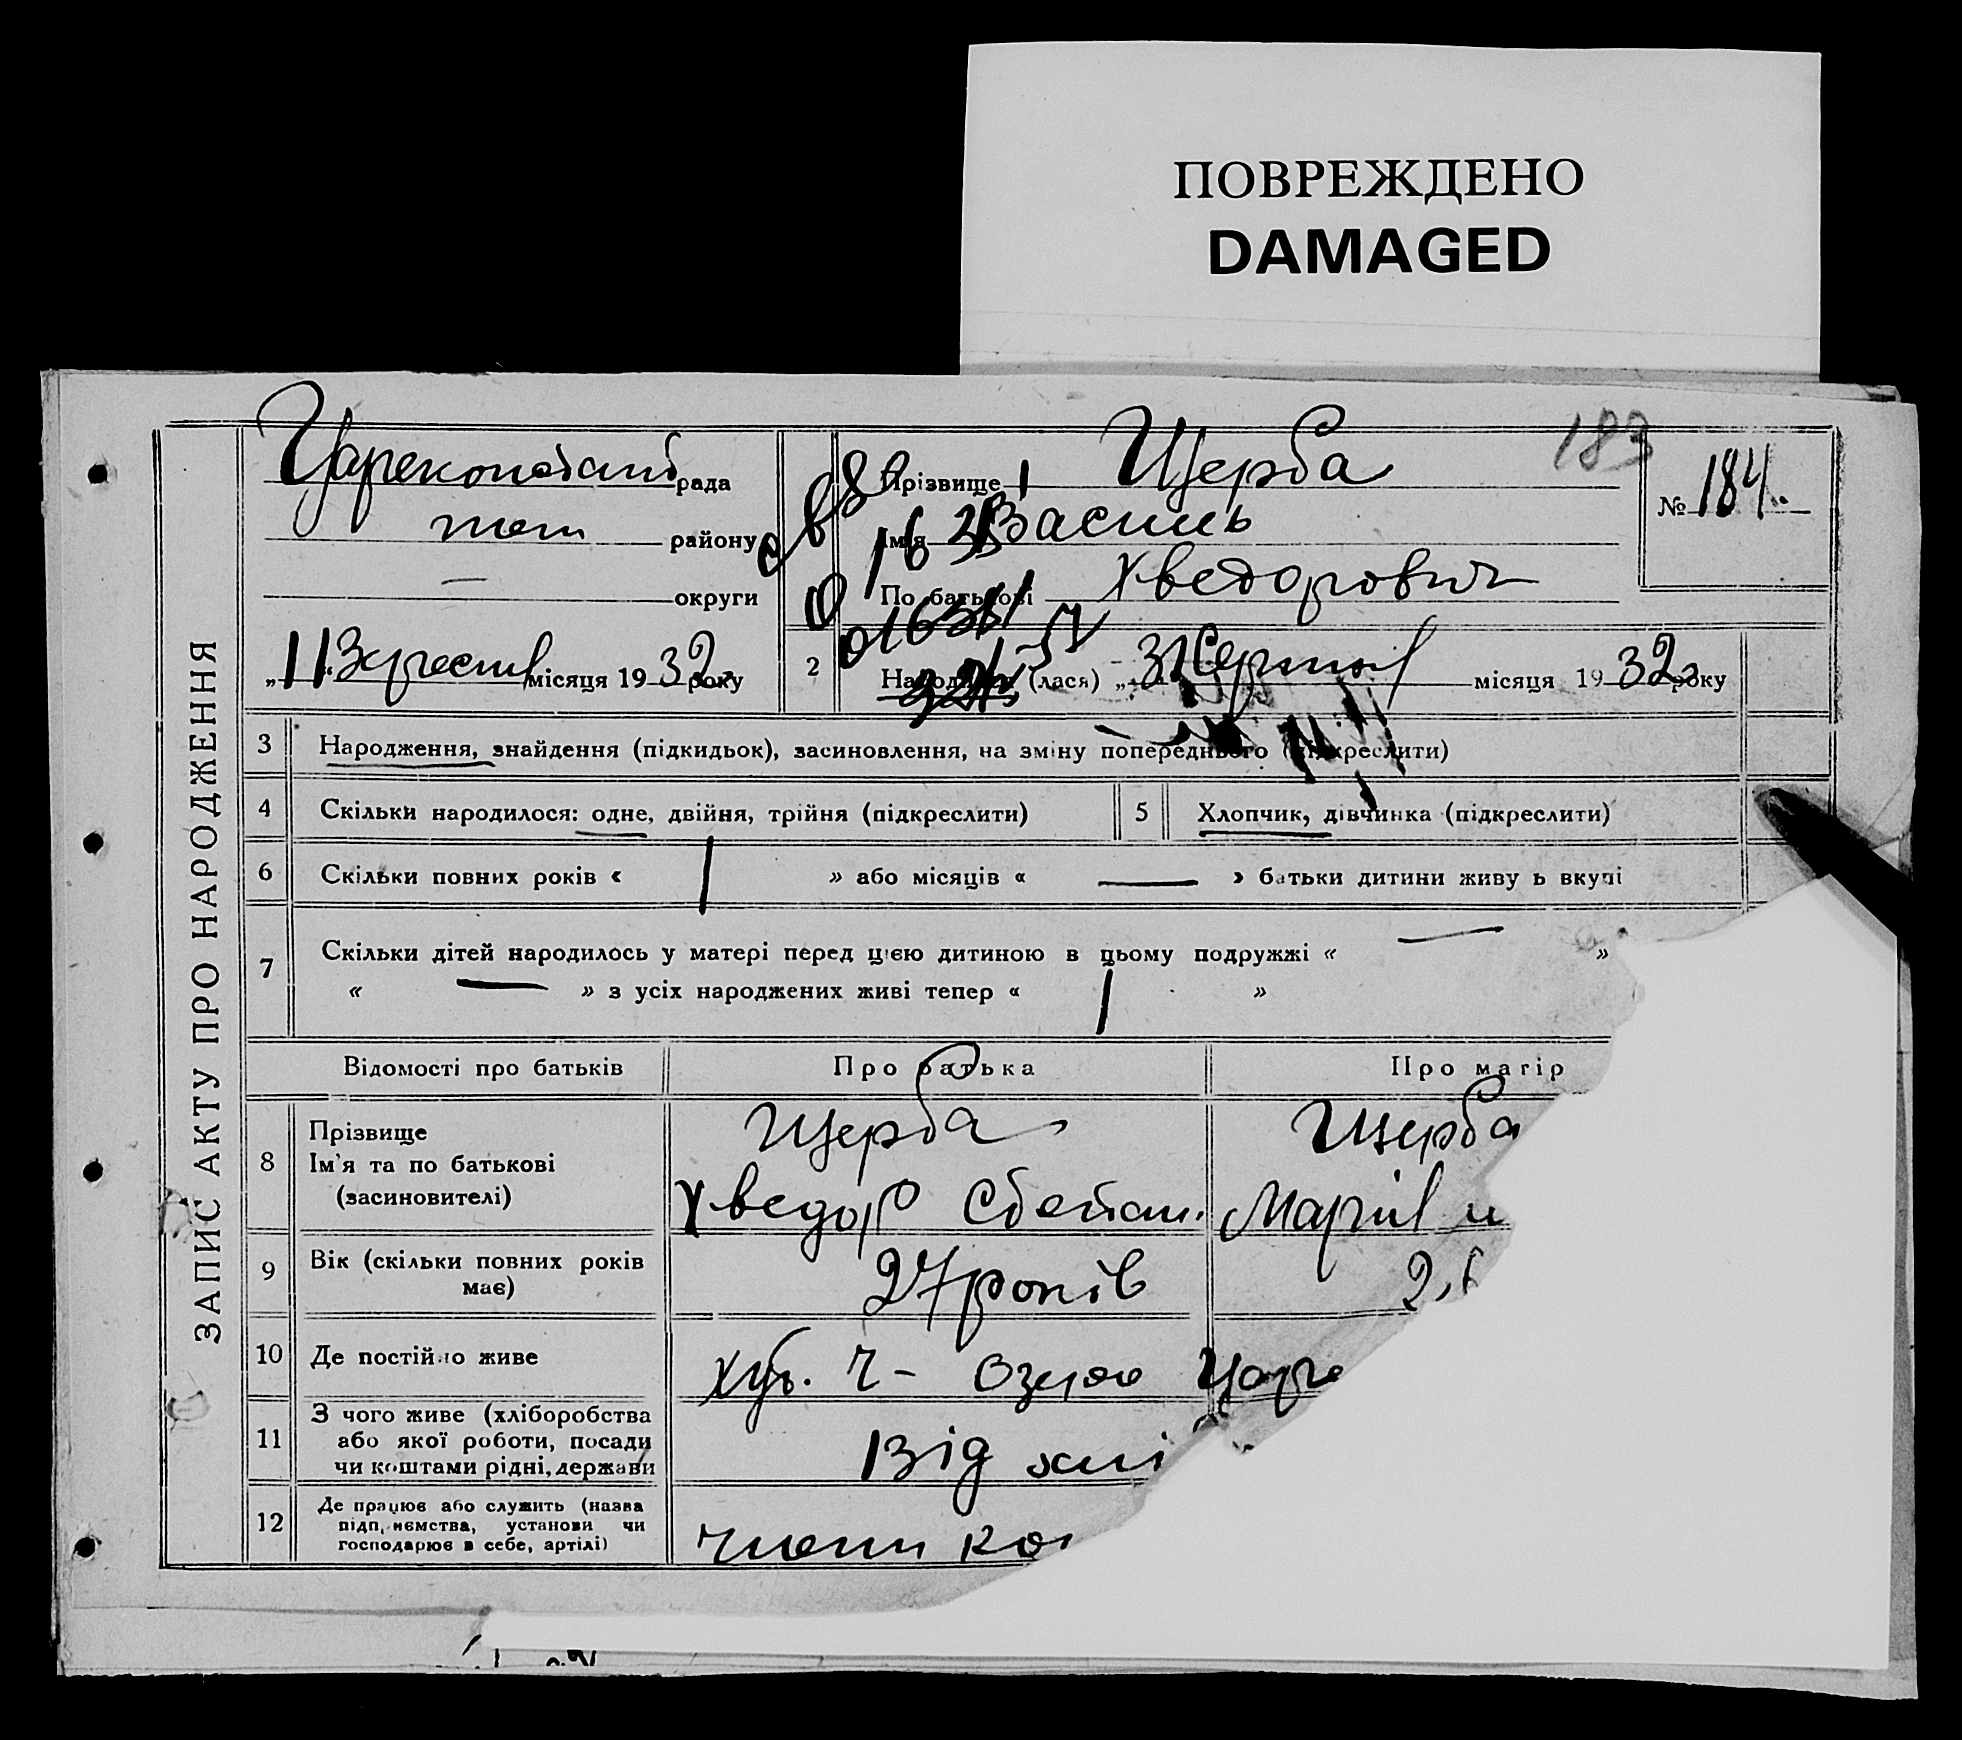 ПОВРЕЖДЕНО
DAMAGED
183
ЗАПИС АКТУ ПРО НАРОДЖЕННЯ
рада
району
округи
"11" місяця 1932 року
Прізвище Щерба
Ім'я Василь
По батькові Хведорович
№ 184
2 Народився (лася) „3" Серпня місяця 1932 року
3 Народження, знайдення (підкидьок), засиновлення, на зміну попереднього (підкреслити)
4 Скільки народилося: одне, двійня, трійня (підкреслити)
5 Хлопчик, дівчинка (підкреслити)
6 Скільки повних років « 1 » або місяців « — » батьки дитини живу ь вкупі
7 Скільки дітей народилось у матері перед цією дитиною в цьому подружжі « — »
« — » з усіх народжених живі тепер « 1 »
Відомості про батьків Про батька Про матір
8 Прізвище
Ім'я та по батькові
(засиновителі)
Щерба
Хведор Степан.
Щерба
Марія
9 Вік (скільки повних років
має)
27 років
10 Де постійно живе
хут. Озеро
11 З чого живе (хліборобства
або якої роботи, посади
чи коштами рідні, держави
Від хлі
12 Де працює або служить (назва
підприємства, установи чи
господарює в себе, артілі)
член ко